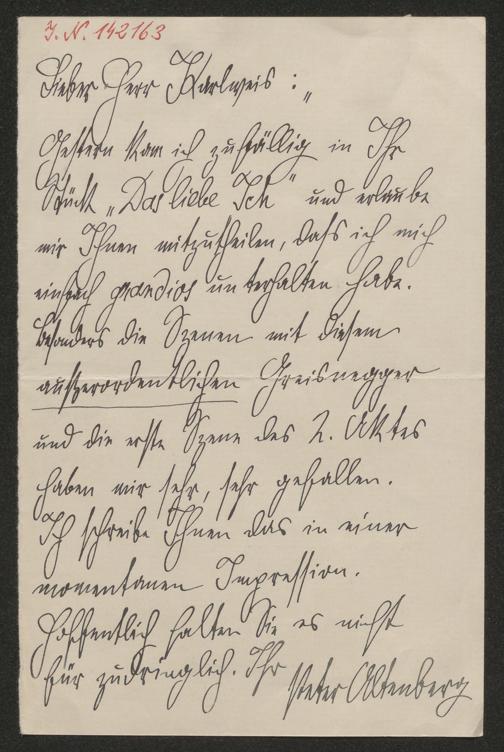 I. N. 142163
Lieber Herr Karlweis :
Gestern kam ich zufällig in Ihr
Stück „Das liebe Ich" und erlaube
mir Ihnen mitzutheilen, dass ich mich
einfach grandios unterhalten habe.
Besonders die Szenen mit diesem
aussƶerordentlichen Greisnegger
und die erste Szene des 2. Aktes
haben mir sehr, sehr gefallen.
Ich schreibe Ihnen das in einer
momentanen Impression.
Hoffentlich halten Sie es nicht
für zudringlich. Ihr
Peter Altenberg